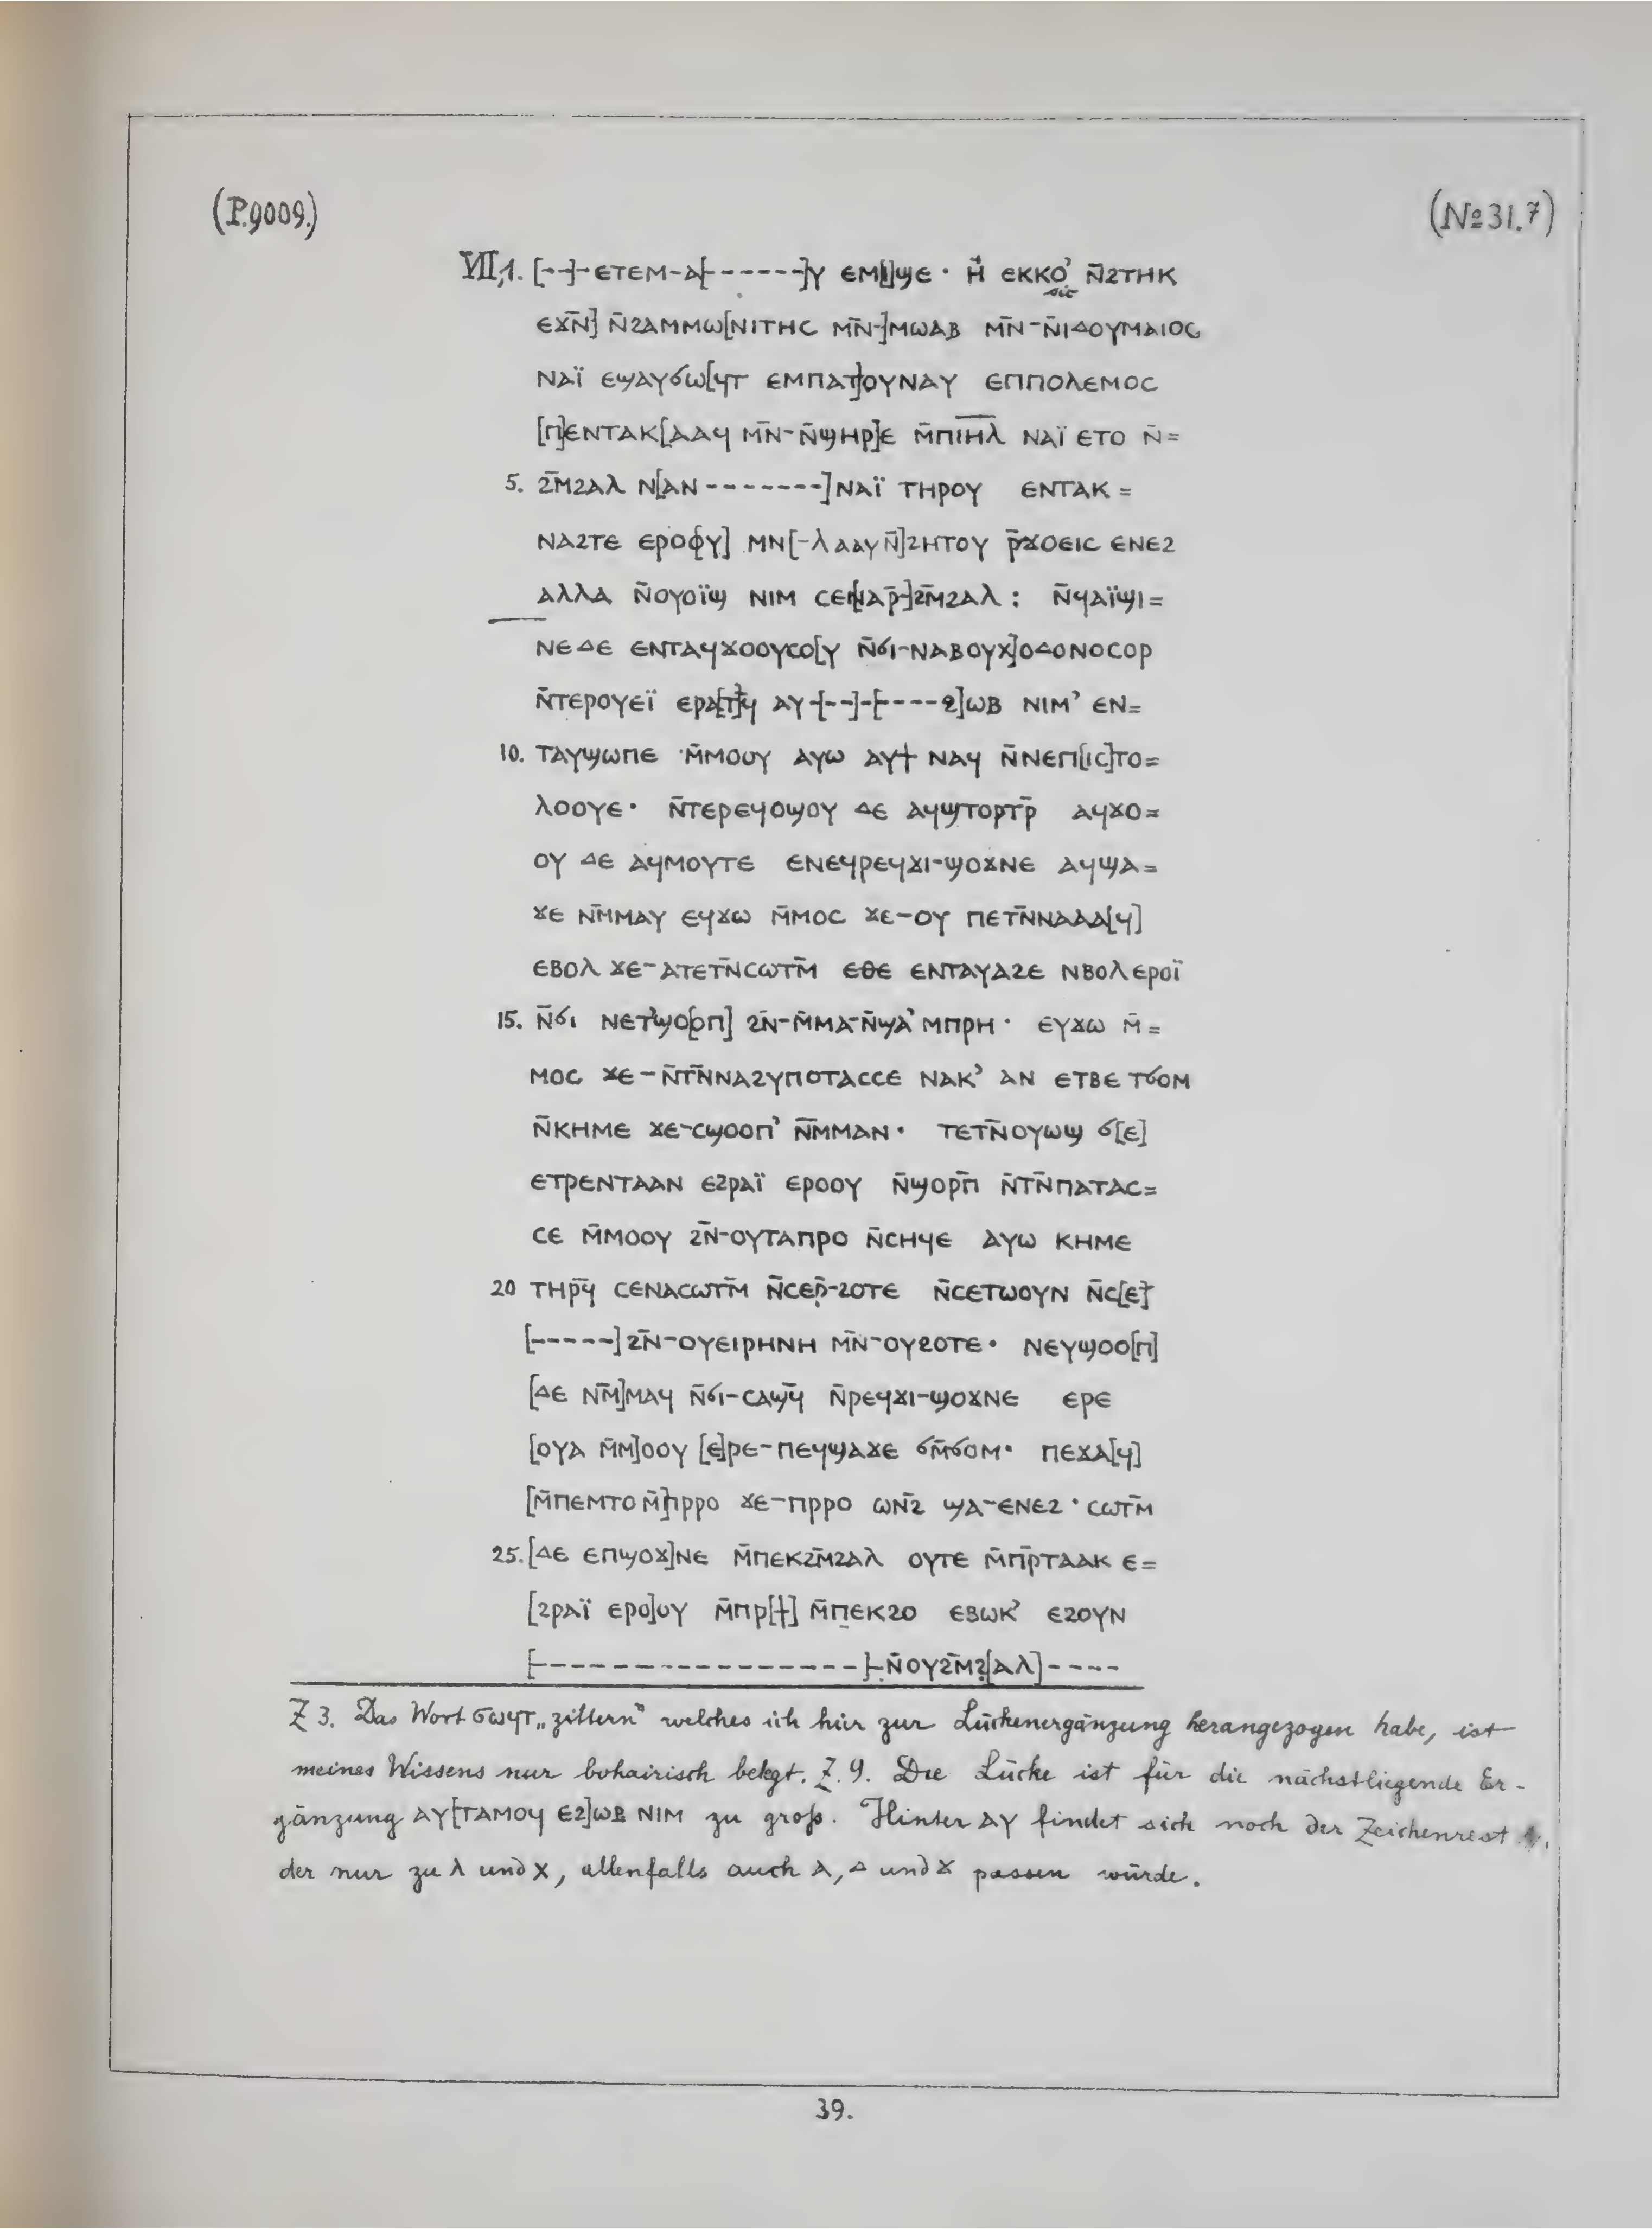 (P.9009.)
(№ 31.7)
VII,1. [--]-ⲉⲧⲉⲙ-ⲁ[------]ⲩ ⲉⲙ[ⲓ]ϣⲉ · ⲏ̓ ⲉⲕⲕⲟ̓ ⲛ̄ϩⲧⲏⲕ
sic
ⲉϫⲛ̄] ⲛ̄ϩⲁⲙⲙⲱ[ⲛⲓⲧⲏⲥ ⲙⲛ̄-]ⲙⲱⲁⲃ ⲙⲛ̄-ⲛ̄ⲓⲇⲟⲩⲙⲁⲓⲟⲥ
ⲛⲁⲓ̈ ⲉϣⲁⲩϭⲱ[ϥⲧ ⲉⲙⲡⲁⲧ]ⲟⲩⲛⲁⲩ ⲉⲡⲡⲟⲗⲉⲙⲟⲥ
[ⲡ]ⲉⲛⲧⲁⲕ[ⲁⲁϥ ⲙⲛ̄-ⲛ̄ϣⲏⲣ]ⲉ ⲙ̄ⲡⲓ̅ⲏ̅ⲗ̅ ⲛⲁⲓ̈ ⲉⲧⲟ ⲛ̄=
5. ϩⲙ̄ϩⲁⲗ ⲛ[ⲁⲛ--------]ⲛⲁⲓ̈ ⲧⲏⲣⲟⲩ ⲉⲛⲧⲁⲕ=
ⲛⲁϩⲧⲉ ⲉⲣⲟ[ⲟⲩ] ⲙⲛ[-ⲗⲁⲁⲩ ⲛ̄]ϩⲏⲧⲟⲩ ⲣ̄ϫⲟⲉⲓⲥ ⲉⲛⲉϩ
ⲁⲗⲗⲁ ⲛ̄ⲟⲩⲟⲓ̈ϣ ⲛⲓⲙ ⲥⲉ[ⲛⲁⲣ̄-]ϩⲙ̄ϩⲁⲗ : ⲛ̄ϥⲁⲓ̈ϣⲓ=
ⲛⲉⲇⲉ ⲉⲛⲧⲁϥϫⲟⲟⲩⲥⲟ[ⲩ ⲛ̄ϭⲓ-ⲛⲁⲃⲟⲩⲭ]ⲟⲇⲟⲛⲟⲥⲟⲣ
ⲛ̄ⲧⲉⲣⲟⲩⲉⲓ̈ ⲉⲣⲁ[ⲧ]ϥ ⲁⲩ-[--]-[----ϩ]ⲱⲃ ⲛⲓⲙ̓ ⲉⲛ=
10. ⲧⲁⲩϣⲱⲡⲉ ⲙ̄ⲙⲟⲟⲩ ⲁⲩⲱ ⲁⲩϯ ⲛⲁϥ ⲛ̄ⲛⲉⲡ[ⲓⲥ]ⲧⲟ=
ⲗⲟⲟⲩⲉ· ⲛ̄ⲧⲉⲣⲉϥⲟϣⲟⲩ ⲇⲉ ⲁϥϣⲧⲟⲣⲧⲣ̄ ⲁϥϫⲟ=
ⲟⲩ ⲇⲉ ⲁϥⲙⲟⲩⲧⲉ ⲉⲛⲉϥⲣⲉϥϫⲓ-ϣⲟϫⲛⲉ ⲁϥϣⲁ=
ϫⲉ ⲛⲙ̄ⲙⲁⲩ ⲉϥϫⲱ ⲙ̄ⲙⲟⲥ ϫⲉ-ⲟⲩ ⲡⲉⲧⲛ̄ⲛⲁⲁⲁ[ϥ]
ⲉⲃⲟⲗ ϫⲉ-ⲁⲧⲉⲧⲛ̄ⲥⲱⲧⲙ̄ ⲉⲑⲉ ⲉⲛⲧⲁⲩⲁϩⲉ ⲛⲃⲟⲗ ⲉⲣⲟⲓ̈
15. ⲛ̄ϭⲓ ⲛⲉⲧ̓ϣⲟ[ⲟⲡ] ϩⲛ̄-ⲙ̄ⲙⲁ-ⲛ̄ϣⲁ̓ ⲙⲡⲣⲏ· ⲉⲩϫⲱ ⲙ̄=
ⲙⲟⲥ ϫⲉ-ⲛ̄ⲧⲛ̄ⲛⲁϩⲩⲡⲟⲧⲁⲥⲥⲉ ⲛⲁⲕ̓ ⲁⲛ ⲉⲧⲃⲉ ⲧϭⲟⲙ
ⲛ̄ⲕⲏⲙⲉ ϫⲉ-ⲥϣⲟⲟⲡ̓ ⲛ̄ⲙ̄ⲙⲁⲛ· ⲧⲉⲧⲛ̄ⲟⲩⲱϣ ϭ[ⲉ]
ⲉⲧⲣⲉⲛⲧⲁⲁⲛ ⲉϩⲣⲁⲓ̈ ⲉⲣⲟⲟⲩ ⲛ̄ϣⲟⲣⲡ̄ ⲛ̄ⲧⲛ̄ⲡⲁⲧⲁⲥ=
ⲥⲉ ⲙ̄ⲙⲟⲟⲩ ϩⲛ̄-ⲟⲩⲧⲁⲡⲣⲟ ⲛ̄ⲥⲏϥⲉ ⲁⲩⲱ ⲕⲏⲙⲉ
20 ⲧⲏⲣϥ̄ ⲥⲉⲛⲁⲥⲱⲧⲙ̄ ⲛ̄ⲥⲉⲣ̄-ϩⲟⲧⲉ ⲛ̄ⲥⲉⲧⲱⲟⲩⲛ ⲛ̄ⲥ[ⲉ]ϯ
[-----] ϩⲛ̄-ⲟⲩⲉⲓⲣⲏⲛⲏ ⲙⲛ̄-ⲟⲩϩⲟⲧⲉ· ⲛⲉⲩϣⲟⲟ[ⲡ]
[ⲇⲉ ⲛⲙ̄]ⲙⲁϥ ⲛ̄ϭⲓ-ⲥⲁϣϥ̄ ⲛ̄ⲣⲉϥϫⲓ-ϣⲟϫⲛⲉ ⲉⲣⲉ
[ⲟⲩⲁ ⲙ̄ⲙ]ⲟⲟⲩ [ⲉ]ⲣⲉ-ⲡⲉϥϣⲁϫⲉ ϭⲙ̄ϭⲟⲙ· ⲡⲉϫⲁ[ϥ]
[ⲙ̄ⲡⲉⲙⲧⲟ ⲙ̄]ⲡⲣⲣⲟ ϫⲉ-ⲡⲣⲣⲟ ⲱⲛϩ̄ ϣⲁ-ⲉⲛⲉϩ · ⲥⲱⲧⲙ̄
25. [ⲇⲉ ⲉⲡϣⲟϫ]ⲛⲉ ⲙ̄ⲡⲉⲕϩⲙ̄ϩⲁⲗ ⲟⲩⲧⲉ ⲙ̄ⲡⲣ̄ⲧⲁⲁⲕ ⲉ=
[ϩⲣⲁⲓ̈ ⲉⲣⲟ]ⲟⲩ ⲙ̄ⲡⲣ[ϯ] ⲙ̄ⲡⲉⲕϩⲟ ⲉⲃⲱⲕ̓ ⲉϩⲟⲩⲛ
[-----------------]-ⲛ̄ⲟⲩϩⲙ̄ϩ[ⲁⲗ]----
Z 3. Das Wort ϭⲱϥⲧ „zittern" welches ich hier zur Lückenergänzung herangezogen habe, ist
meines Wissens nur bohairisch belegt. Z. 9. Die Lücke ist für die nächstliegende Er-
gänzung ⲁⲩ[ⲧⲁⲙⲟϥ ⲉϩ]ⲱⲃ ⲛⲓⲙ zu groß. Hinter ⲁⲩ findet sich noch der Zeichenrest
der nur zu ⲗ und ⲭ, allenfalls auch ⲁ, ⲇ und ϫ passen würde.
39.